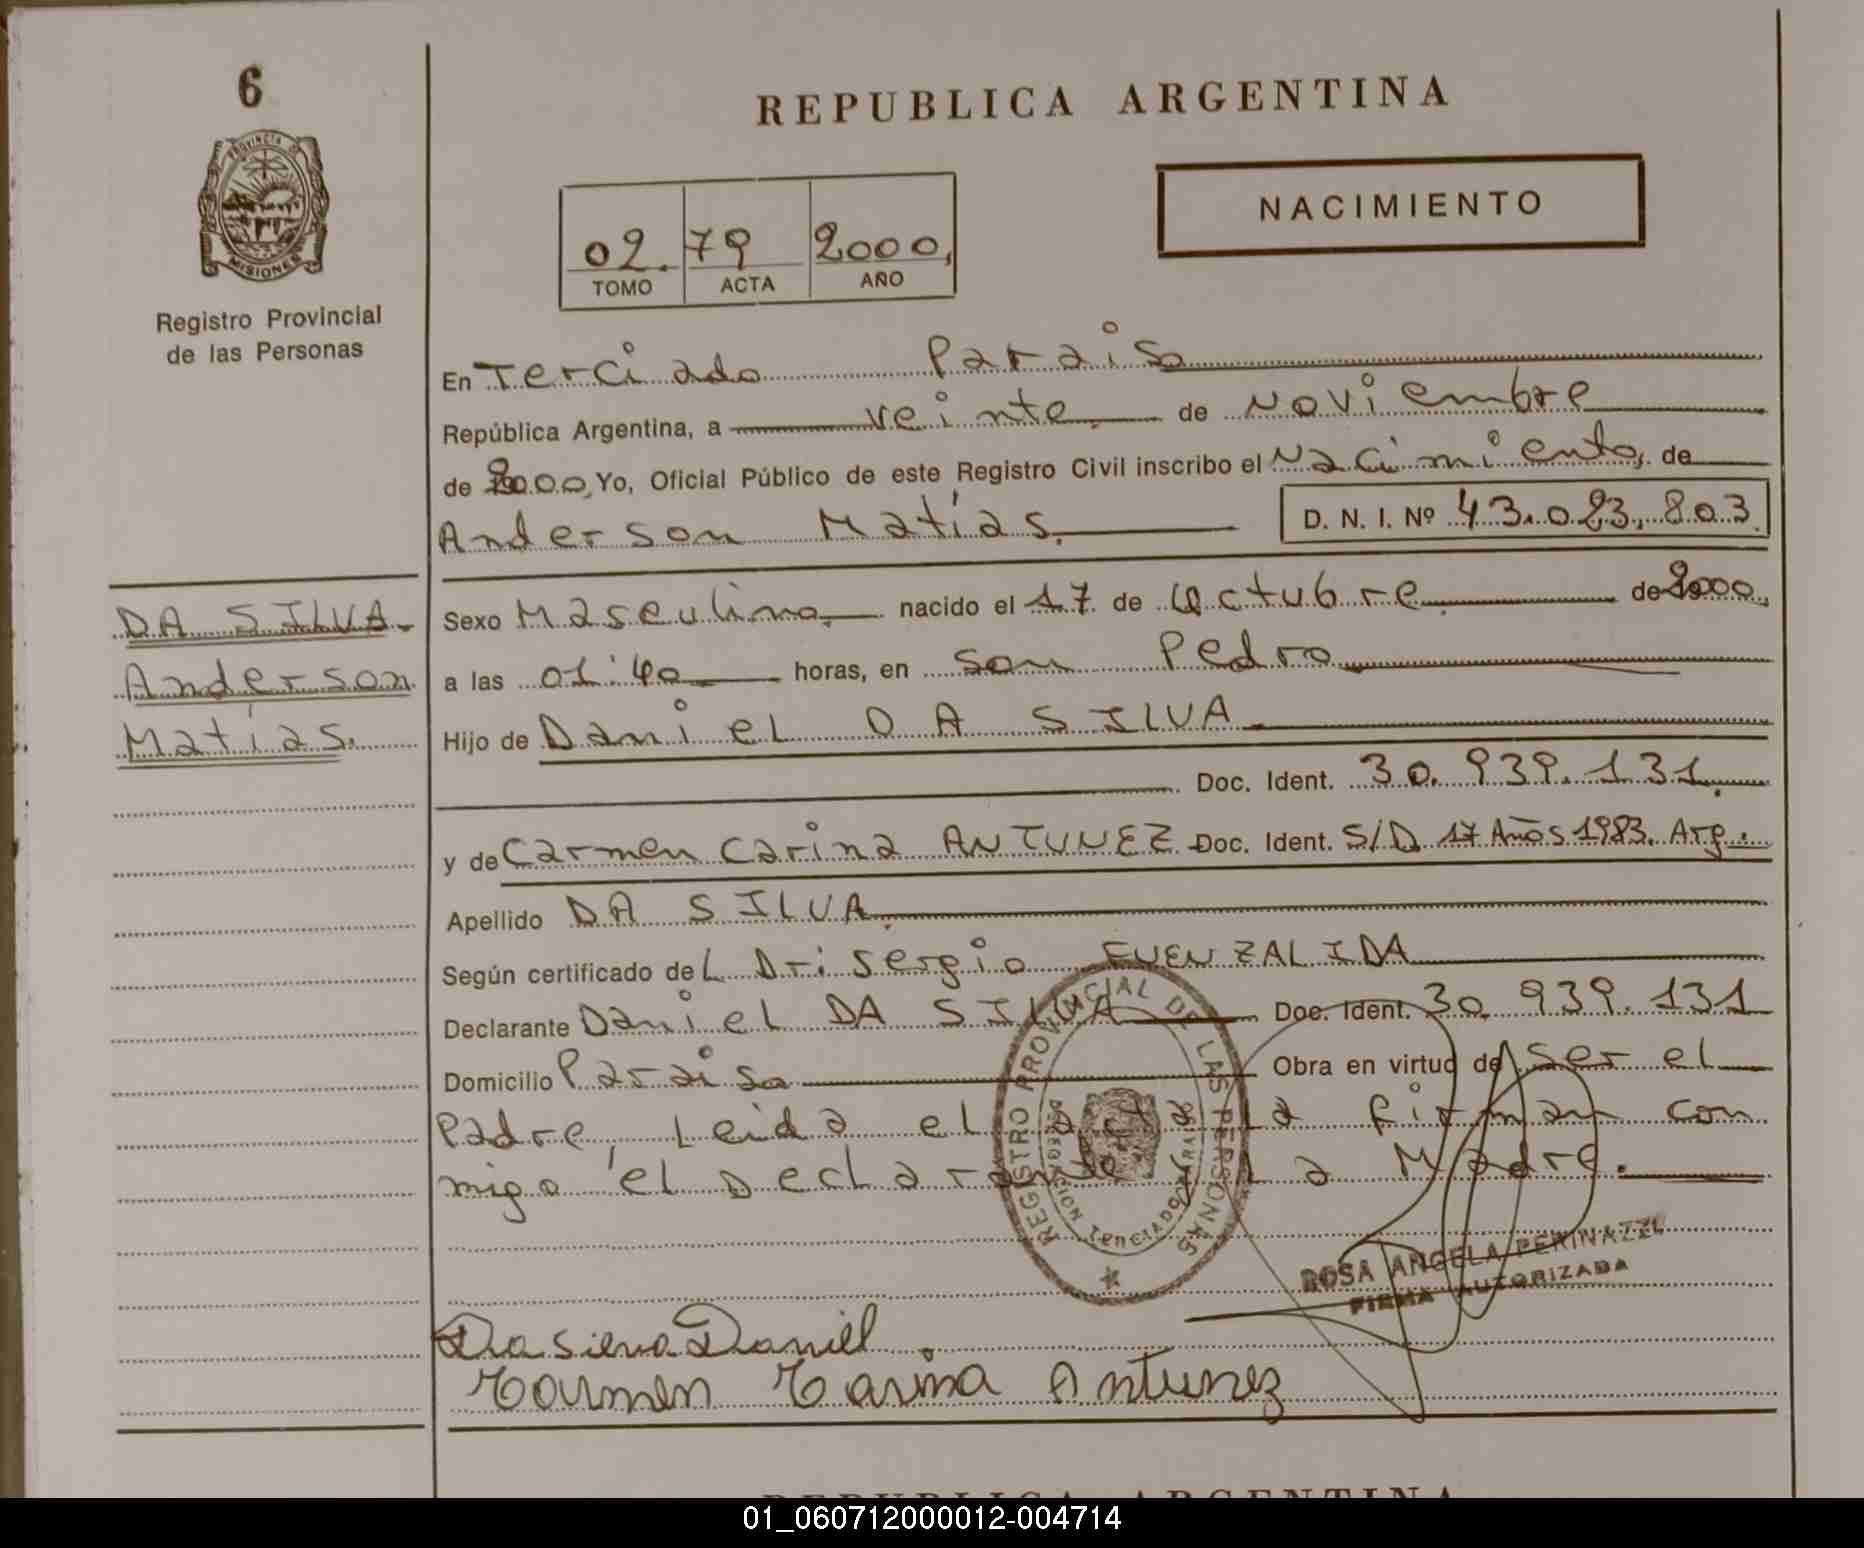 6
PROVINCIA DE
MISIONES
Registro Provincial
de las Personas
REPUBLICA ARGENTINA
NACIMIENTO
02. 79 2000,
TOMO ACTA AÑO
En Terciado Paraiso
República Argentina, a veinte de Noviembre
de 2000, Yo, Oficial Público de este Registro Civil inscribo el Nacimiento, de
Anderson Matías. D. N. I. Nº 43.023.803
DA SILVA.
Anderson
Matías.
Sexo Masculino, nacido el 17 de Octubre de 2000,
a las 01:40 horas, en San Pedro
Hijo de Daniel DA SILVA
Doc. Ident. 30.939.131.
y de Carmen Carina ANTUNEZ Doc. Ident. S/D 17 Años 1983. Arg.
Apellido DA SILVA
Según certificado del Dr: Sergio FUENZALIDA
Declarante Daniel DA SILVA Doc. Ident. 30.939.131
Domicilio Paraiso Obra en virtud de ser el
Padre, Leida el acta La firman con
migo el Declarante y La Madre.
REGISTRO PROVINCIAL DE LAS PERSONAS
DELEGACION TERCIADO PARAISO
ROSA ANGELA PERINAZZI
FIRMA AUTORIZADA
Da silva Daniel.
Carmen Carina Antunez
REPUBLICA ARGENTINA
01_060712000012-004714